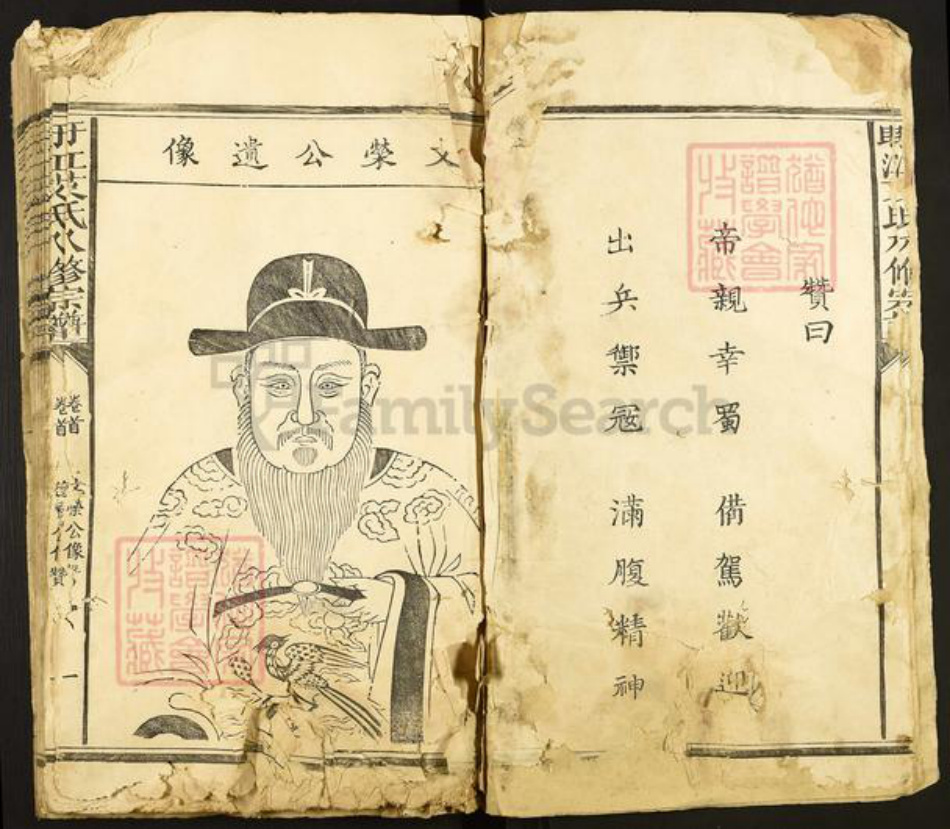 文榮公遺像
贊曰
帝親幸蜀 備駕歡迎
出兵禦冦 滿腹精神
氏八修宗譜
卷首
卷首
文榮公像
贊
一
譜學會
特藏
譜學會
特藏
FamilySearch